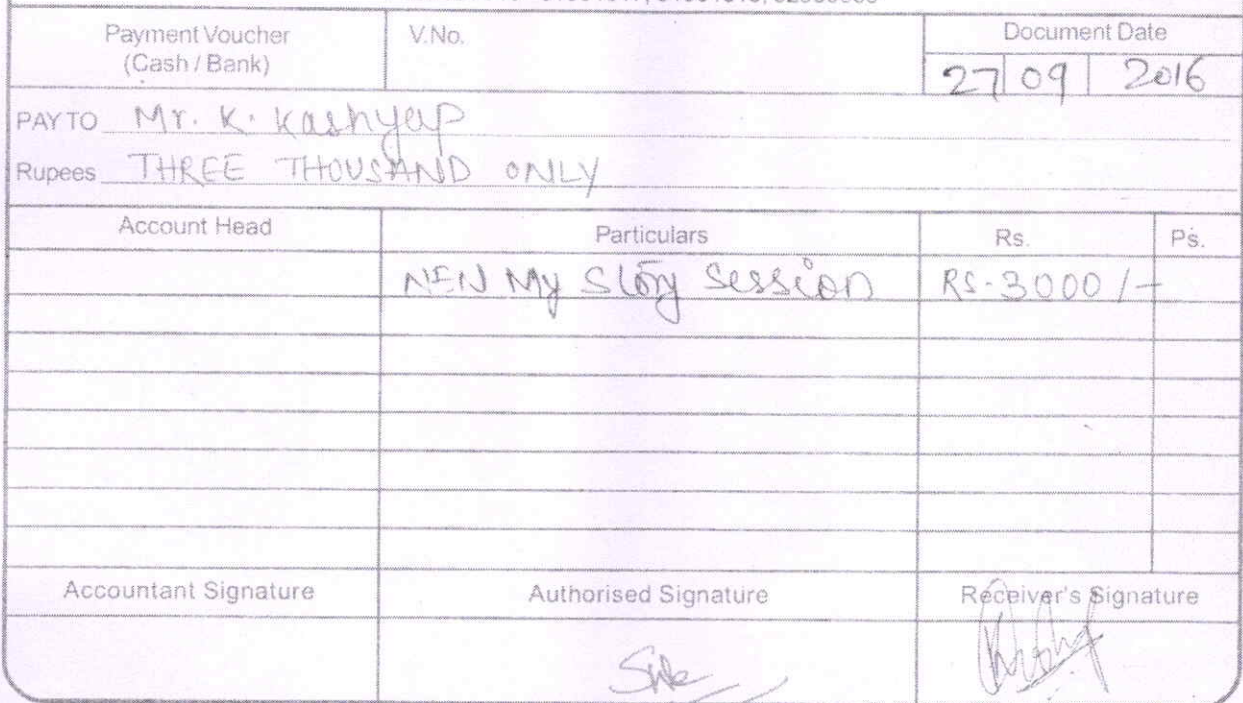 Payment Voucher
(Cash / Bank)
V.No.
Document Date
27 09 2016
PAY TO Mr. K. Kashyap
Rupees THREE THOUSAND ONLY
Account Head Particulars Rs. Ps.
NEN My Story Session RS-3000/-
Accountant Signature Authorised Signature Receiver's Signature